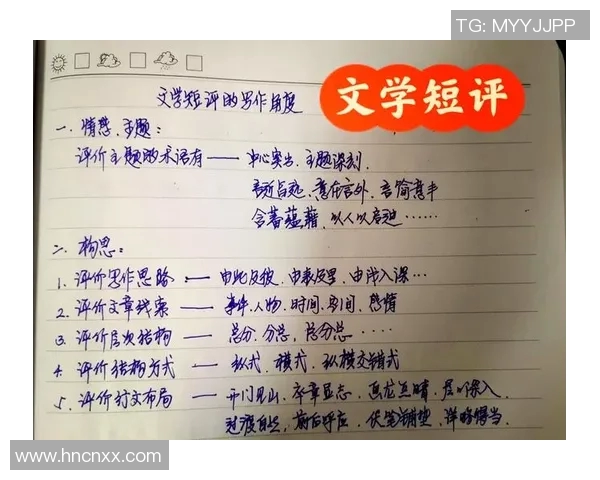 TG: MYYJJPP
文学短评
文学短评的写作角度
一、情感、主题：
评价主题的术语有——中心突出、主题深刻、
言近旨远、意在言外、言简意丰
含蓄蕴藉、以人以启迪……
二、构思：
1、评价写作思路——由此及彼、由表及里、由浅入深…
2、评价文章线索——事件、人物、时间、空间、感情
3、评价层次结构——总分、分总、总分总……
4、评价结构方式——纵式、横式、纵横交错式
5、评价行文布局——开门见山、卒章显志、画龙点睛、层层深入、
过渡自然、前后呼应、伏笔铺垫、详略得当。
www.hncnxx.com